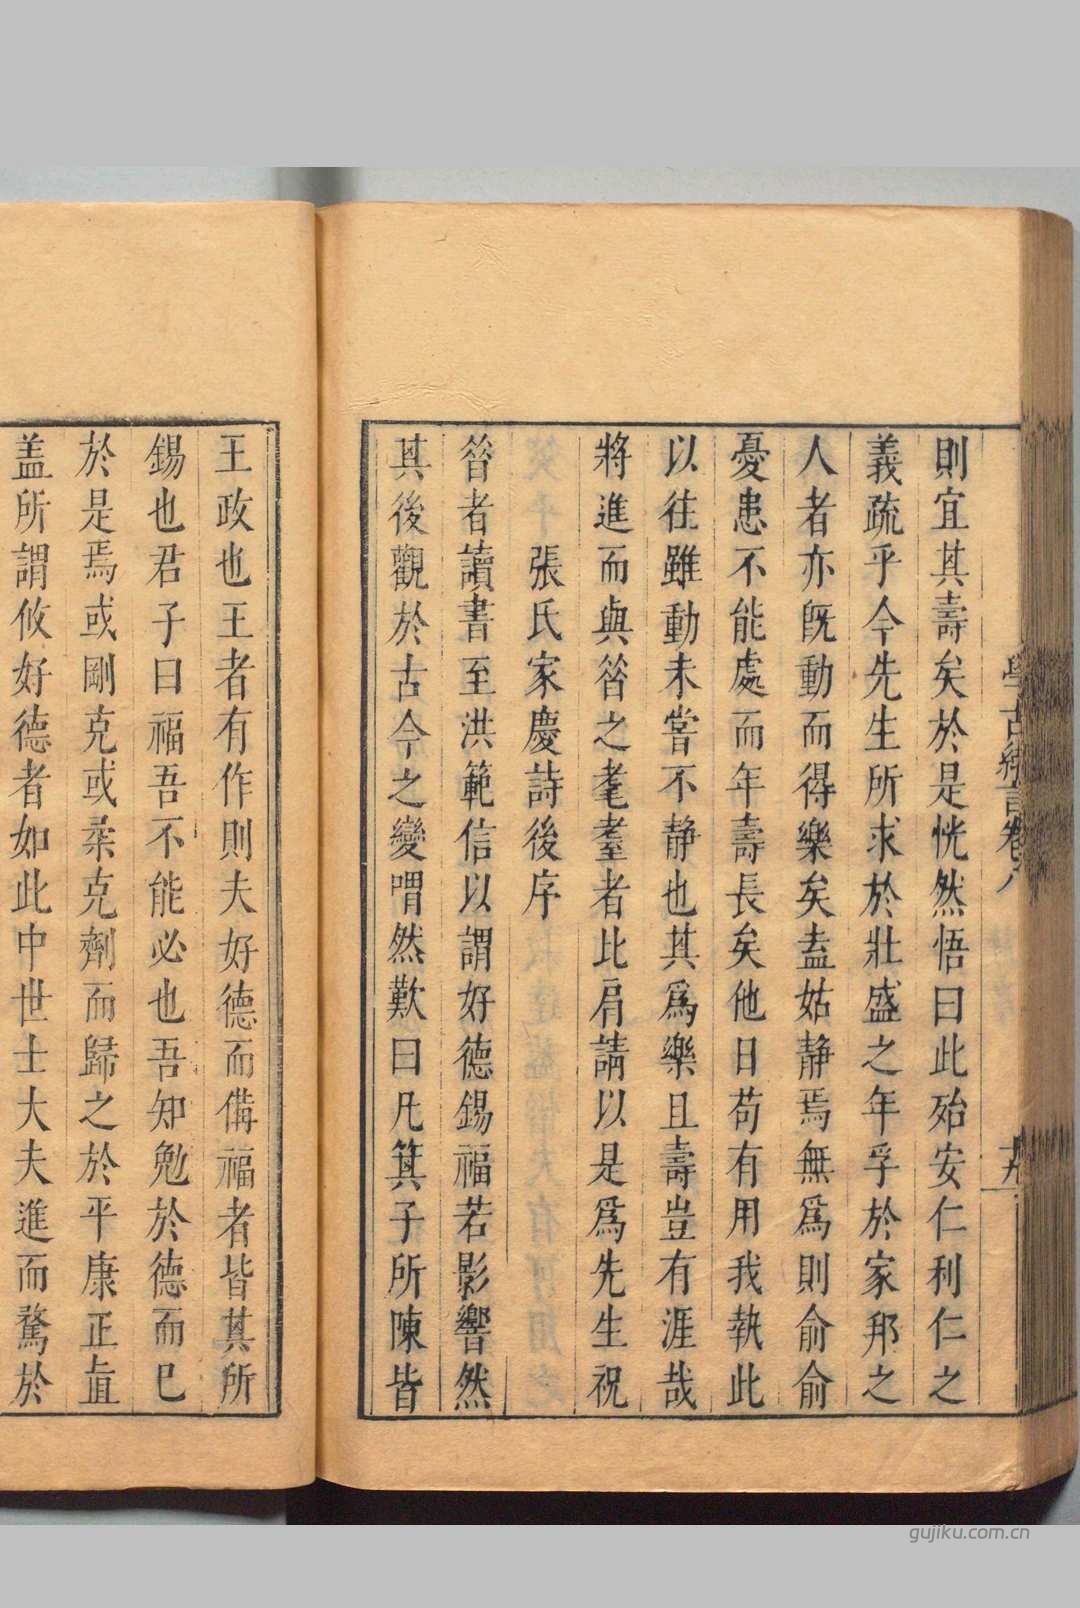 學古緒言卷八
十九
則宜其壽矣於是恍然悟曰此殆安仁利仁之
義疏乎今先生所求於壯盛之年孚於家邦之
人者亦旣動而得樂矣盍姑靜焉無爲則俞俞
憂患不能處而年壽長矣他日苟有用我執此
以往雖動未嘗不靜也其爲樂且壽豈有涯哉
將進而與㗖之耄耋者比肩請以是爲先生祝
張氏家慶詩後序
㗖者讀書至洪範信以謂好德錫福若影響然
其後觀於古今之變喟然歎曰凡箕子所陳皆
王政也王者有作則夫好德而備福者皆其所
錫也君子曰福吾不能必也吾知勉於德而已
於是焉或剛克或柔克劑而歸之於平康正直
盖所謂攸好德者如此中世士大夫進而騖於
gujiku.com.cn